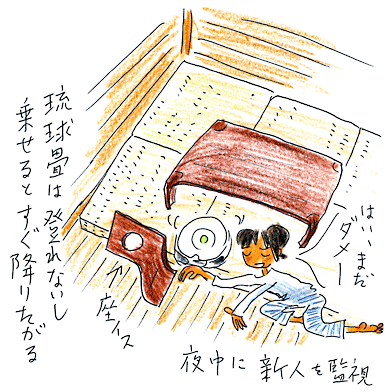 はい、まだ
ダメー
琉球畳は登れないし
乗せるとすぐ降りたがる
座イス
夜中に新人を監視